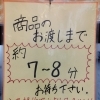 商品の
お渡しまで
約
7～8分
お待ち下さい。